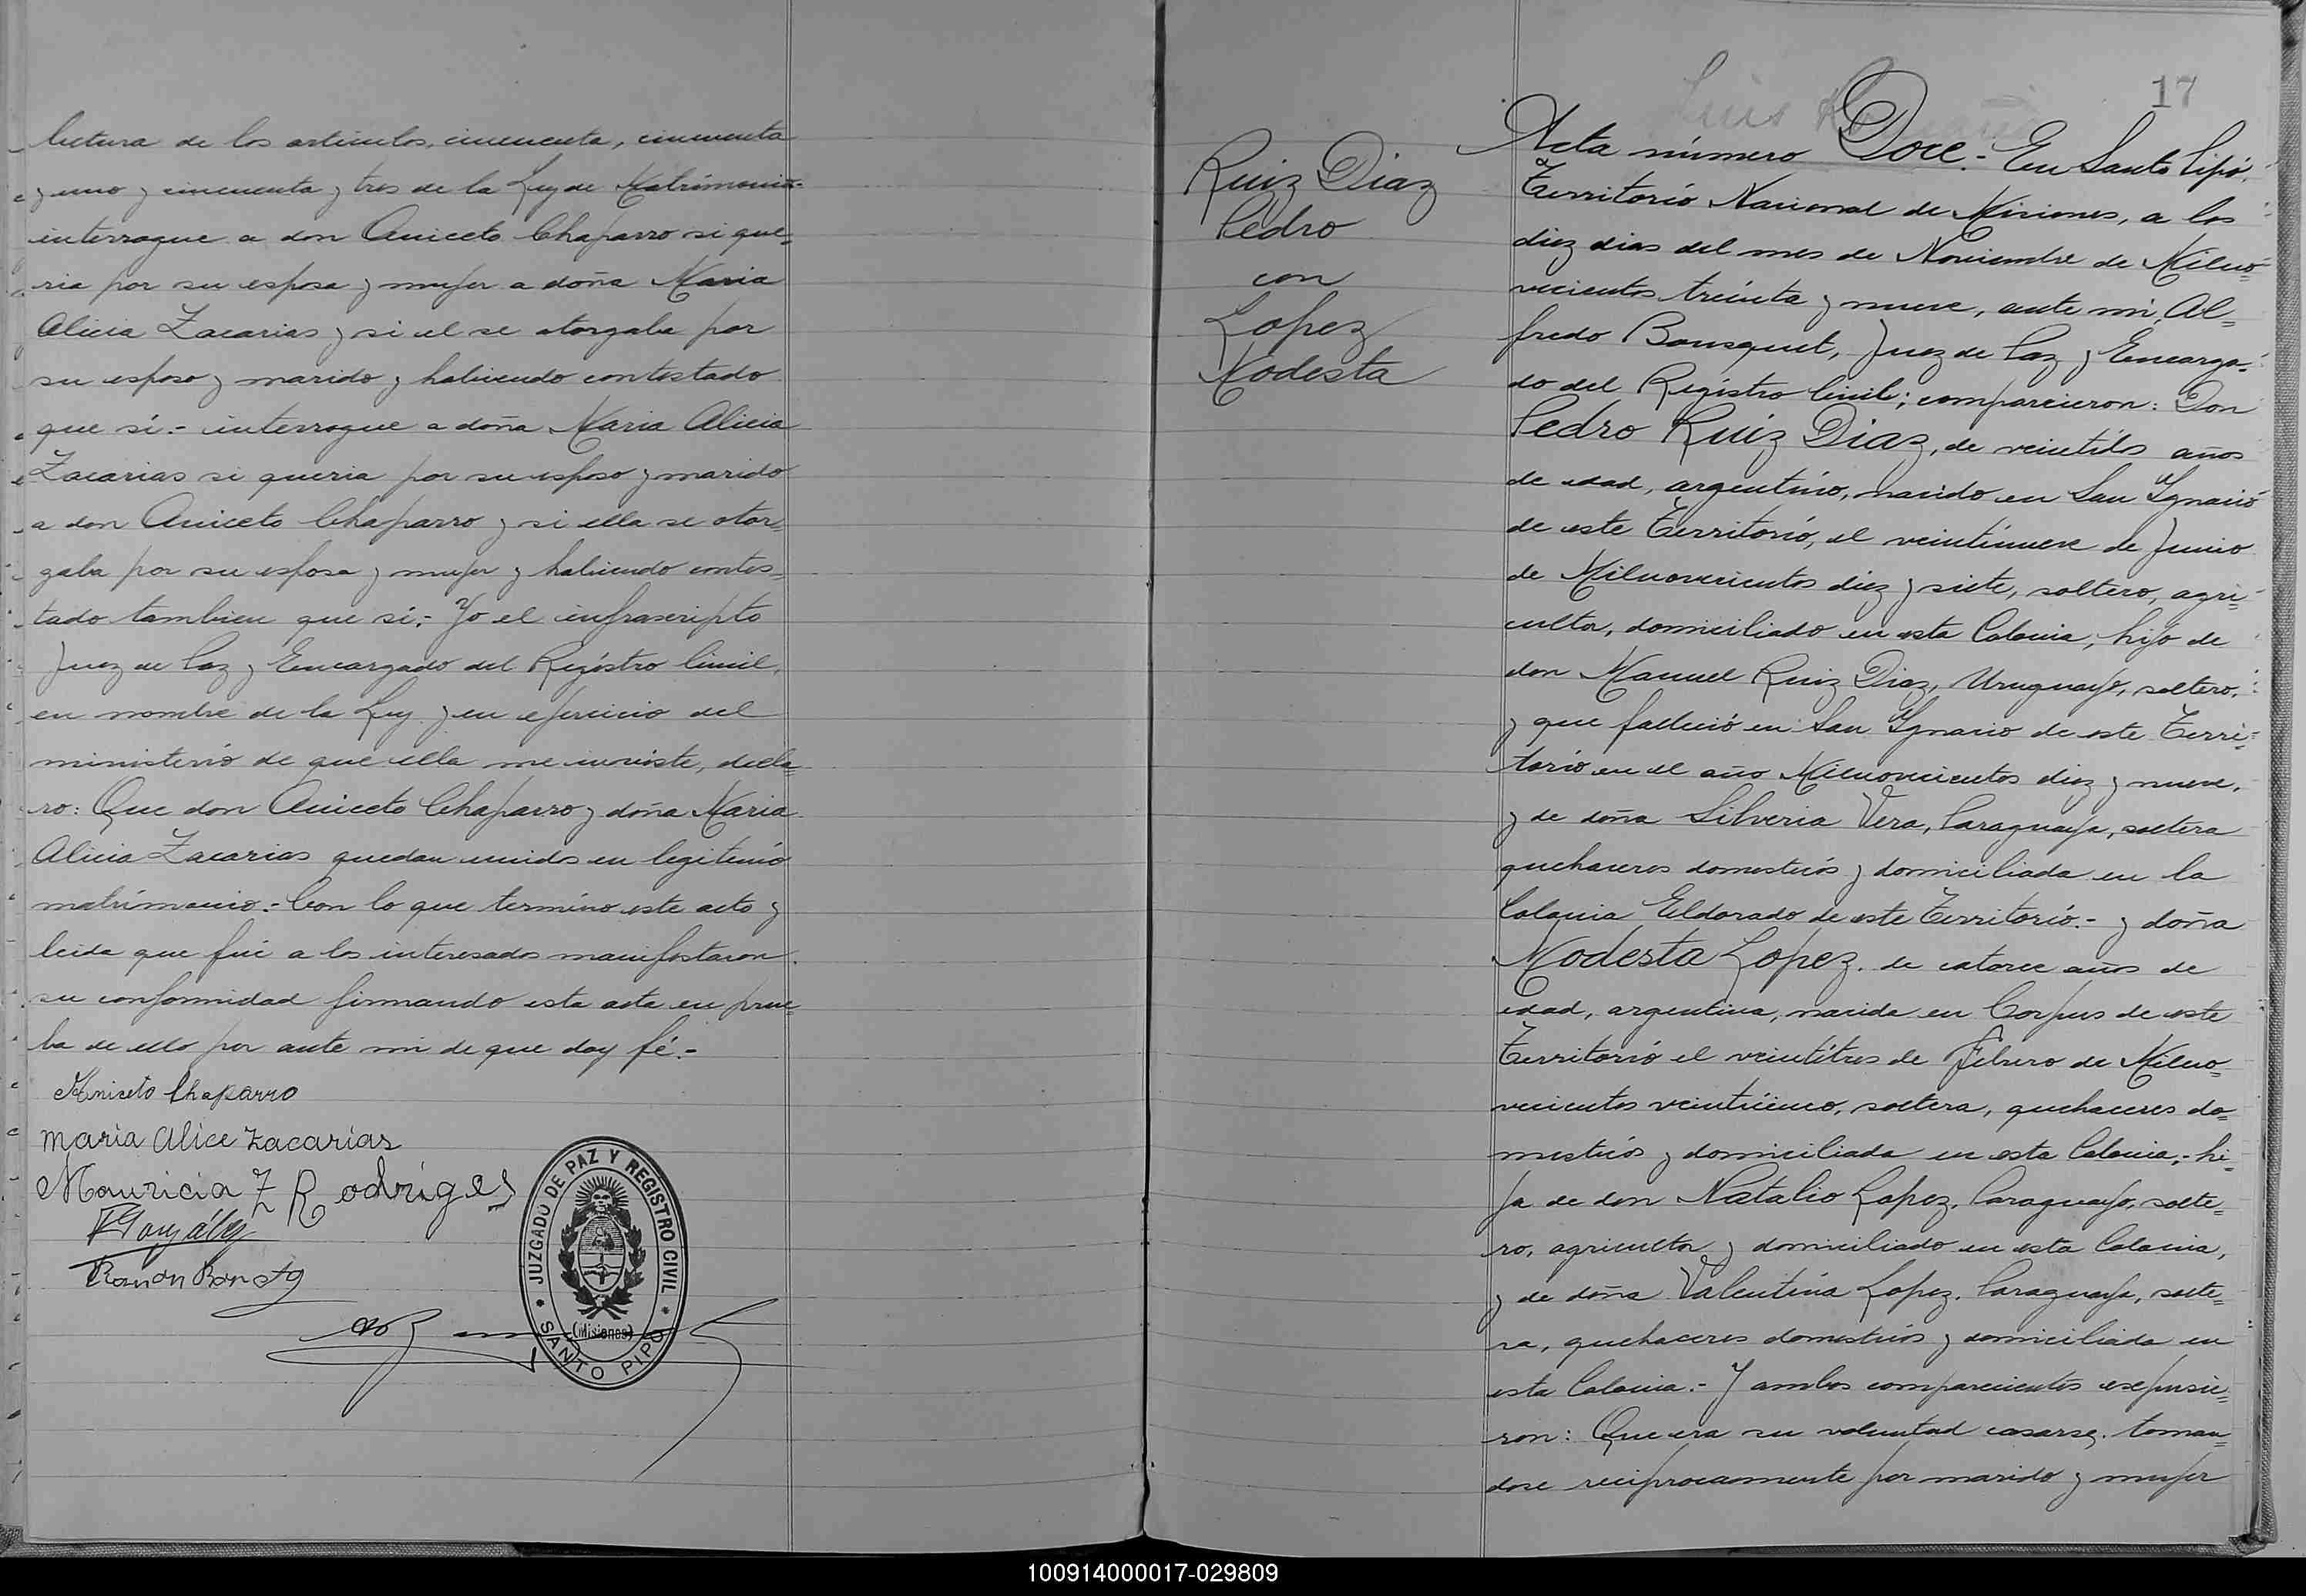 lectura de los articulos, cincuenta, cincuenta
y uno y cincuenta y tres de la Ley de Matrimonio.-
interrogue a don Aniceto Chaparro si que=
ria por su esposa y mujer a doña Maria
Alicia Zacarias y si el se otorgaba por
su esposo y marido y habiendo contestado
que sí.- interrogue a doña Maria Alicia
Zacarias si queria por su esposo y marido
a don Aniceto Chaparro y si ella se otor=
gaba por su esposa y mujer y habiendo contes=
tado tambien que sí.- Yo el infrascripto
Juez de Paz y Encargado del Registro Civil,
en nombre de la Ley y en ejercicio del
ministerio de que ella me inviste, decla=
ro: Que don Aniceto Chaparro y doña Maria
Alicia Zacarias quedan unidos en legitimo
matrimonio.- Con lo que termino este acto y
leida que fué a los interesados manifestaron
su conformidad firmando esta acta en prue=
ba de ello por ante mi de que doy fé.-
Aniseto Chaparro
Maria Alice Zacarias
Mauricia Z Rodriges
González
Ramon
JUZGADO DE PAZ Y REGISTRO CIVIL
(Misiones)
SANTO PIPÓ
17
Luis
Ruiz Diaz
Pedro
con
Lopez
Modesta
Acta número Doce.- En Santo Pipó,
Territorio Nacional de Misiones, a los
diez dias del mes de Noviembre de Milno=
vecientos treinta y nueve, ante mi, Al=
fredo Bousquet, Juez de Paz y Encarga=
do del Registro Civil; comparecieron: Don
Pedro Ruiz Diaz, de veintidos años
de edad, argentino, nacido en San Ygnacio
de este Territorio, el veintinueve de Junio
de Milnovecientos diez y siete, soltero, agri=
cultor, domiciliado en esta Colonia, hijo de
don Manuel Ruiz Diaz, Uruguayo, soltero,
y que falleció en San Ygnacio de este Terri=
torio en el año Milnovecientos diez y nueve,
y de doña Silveria Vera, Paraguaya, soltera
quehaceres domesticos y domiciliada en la
Colonia Eldorado de este Territorio.- y doña
Modesta Lopez, de catorce años de
edad, argentina, nacida en Corpus de este
Territorio el veintitres de Febrero de Milno=
vecientos veinticinco, soltera, quehaceres do=
mesticos y domiciliada en esta Colonia,- hi=
ja de don Natalio Lopez, Paraguayo, solte=
ro, agricultor y domiciliado en esta Colonia,
y de doña Valentina Lopez, Paraguaya, solte=
ra, quehaceres domesticos y domiciliada en
esta Colonia.- Y ambos comparecientes expusie=
ron: Que era su voluntad casarse, toman=
dose reciprocamente por marido y mujer
100914000017-029809